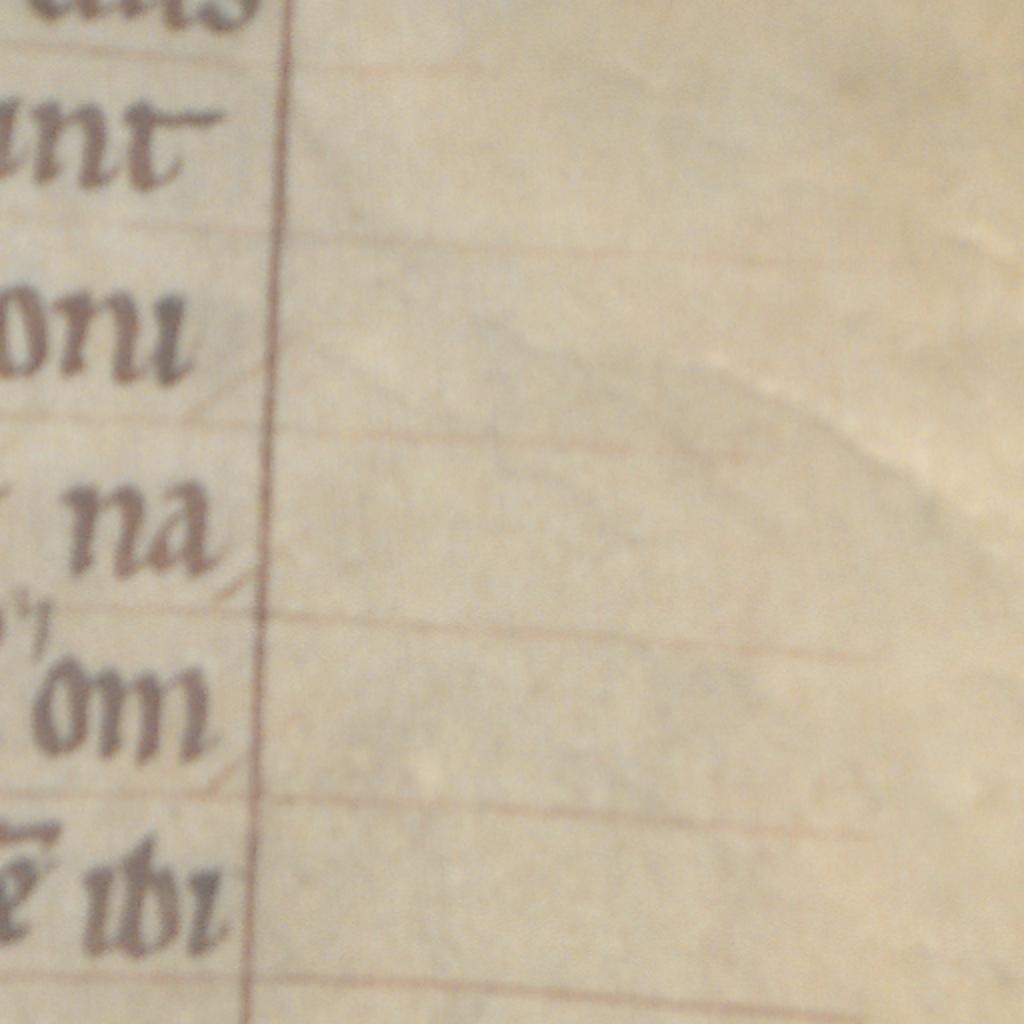 unt
oni
na
om
ē ibi